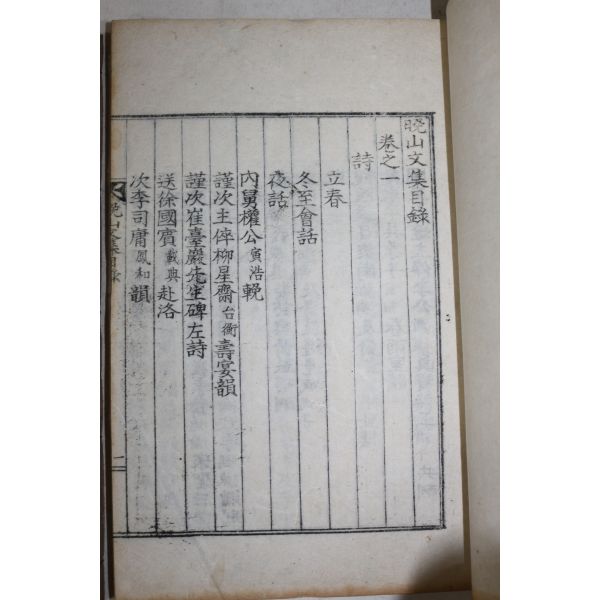 晩山文集目録
卷之一
詩
立春
冬至會話
夜話
內舅權公寅浩輓
謹次主倅柳星齋台衡壽宴韻
謹次崔臺巖先生碑左詩
送徐國賓載興赴洛
次李司庸鳳和韻
晩山文集目録